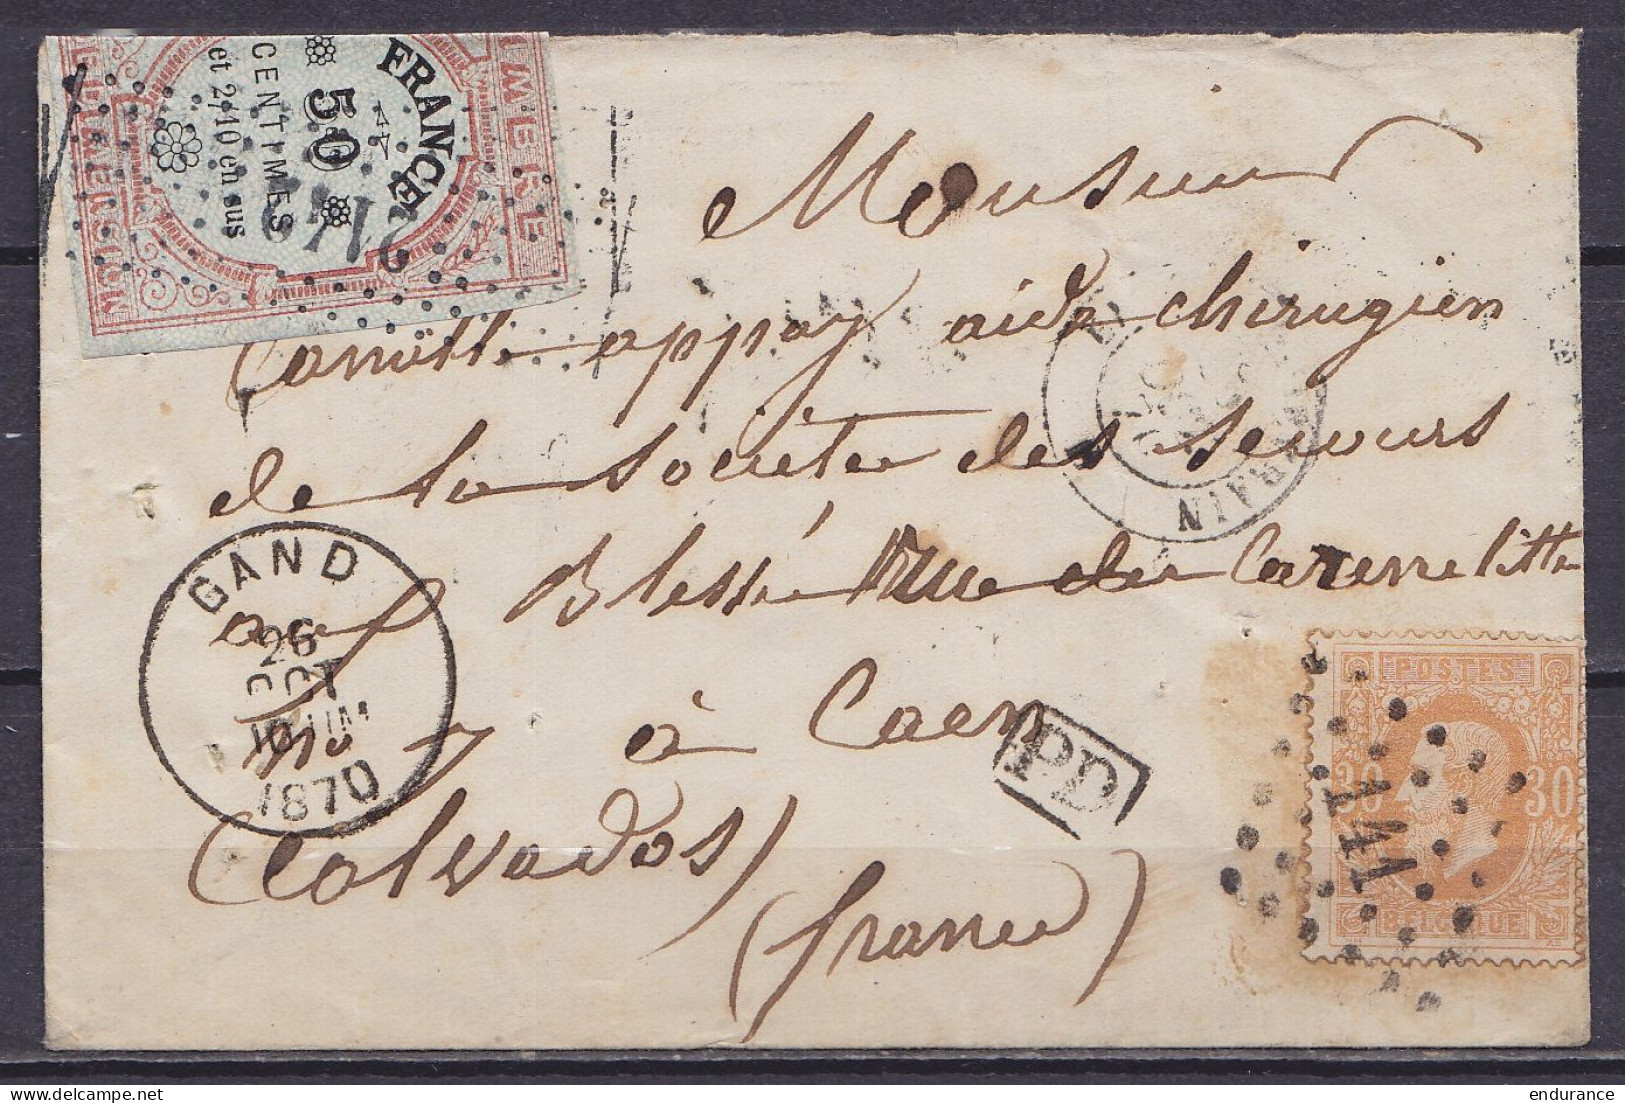 TIMBRE
FRANCE
50
CENTIMES
et 2/10 en sus
Monsieur
Camille appay aide chirugien
de la société des secours
aux Blessé Rue des Carmelitte
No 7 à Caen
(Calvados)
(france)
GAND
26
OCT
1870
PD
POSTES
30 30
BELGIQUE
141
endurance